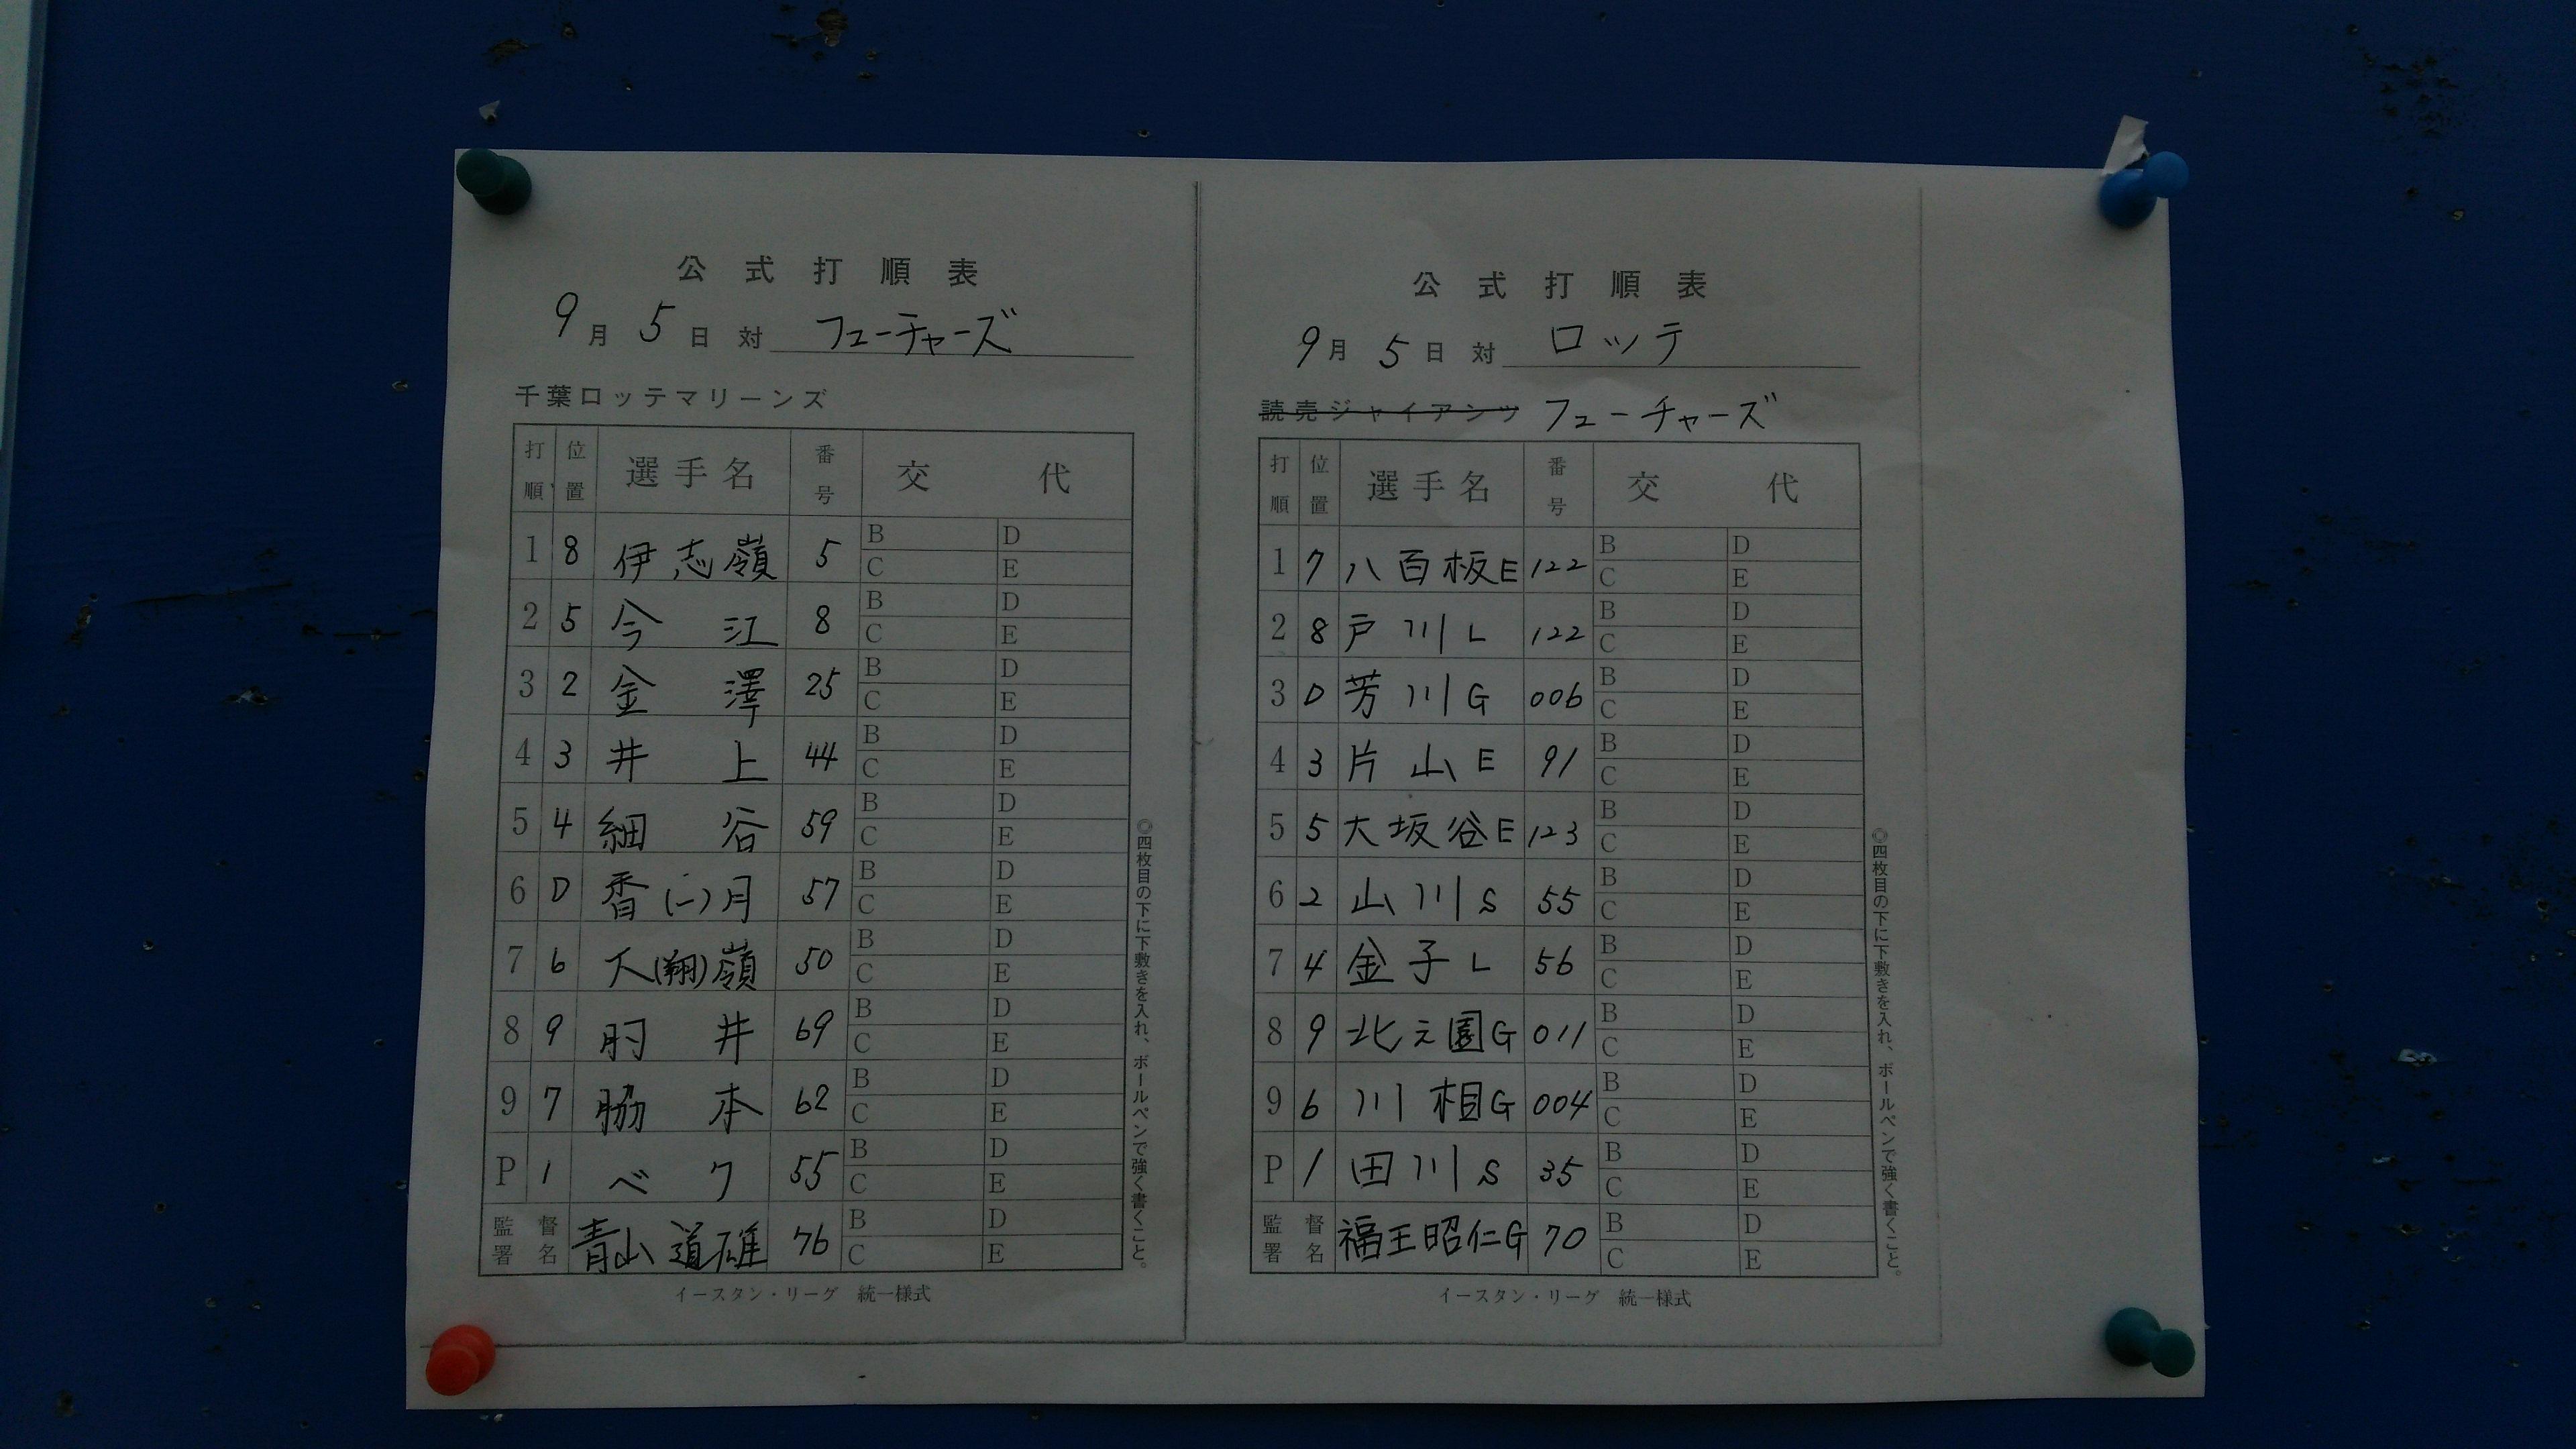 公式打順表
9月5日対 フューチャーズ
千葉ロッテマリーンズ
打順 位置 選手名 番号 交代
1 8 伊志嶺 5 B C D E
2 5 今江 8 B C D E
3 2 金澤 25 B C D E
4 3 井上 44 B C D E
5 4 細谷 59 B C D E
6 D 香(一)月 57 B C D E
7 6 大(翔)嶺 50 B C D E
8 9 肘井 69 B C D E
9 7 脇本 62 B C D E
P 1 ベク 55 B C D E
監督署名 青山道雄 76 B C D E
イースタン・リーグ 統一様式
◎四枚目の下に下敷きを入れ、ボールペンで強く書くこと。
公式打順表
9月5日対 ロッテ
読売ジャイアンツ フューチャーズ
打順 位置 選手名 番号 交代
1 7 八百板E 122 B C D E
2 8 戸川L 122 B C D E
3 D 芳川G 006 B C D E
4 3 片山E 91 B C D E
5 5 大坂谷E 123 B C D E
6 2 山川S 55 B C D E
7 4 金子L 56 B C D E
8 9 北之園G 011 B C D E
9 6 川相G 004 B C D E
P 1 田川S 35 B C D E
監督署名 福王昭仁G 70 B C D E
イースタン・リーグ 統一様式
◎四枚目の下に下敷きを入れ、ボールペンで強く書くこと。